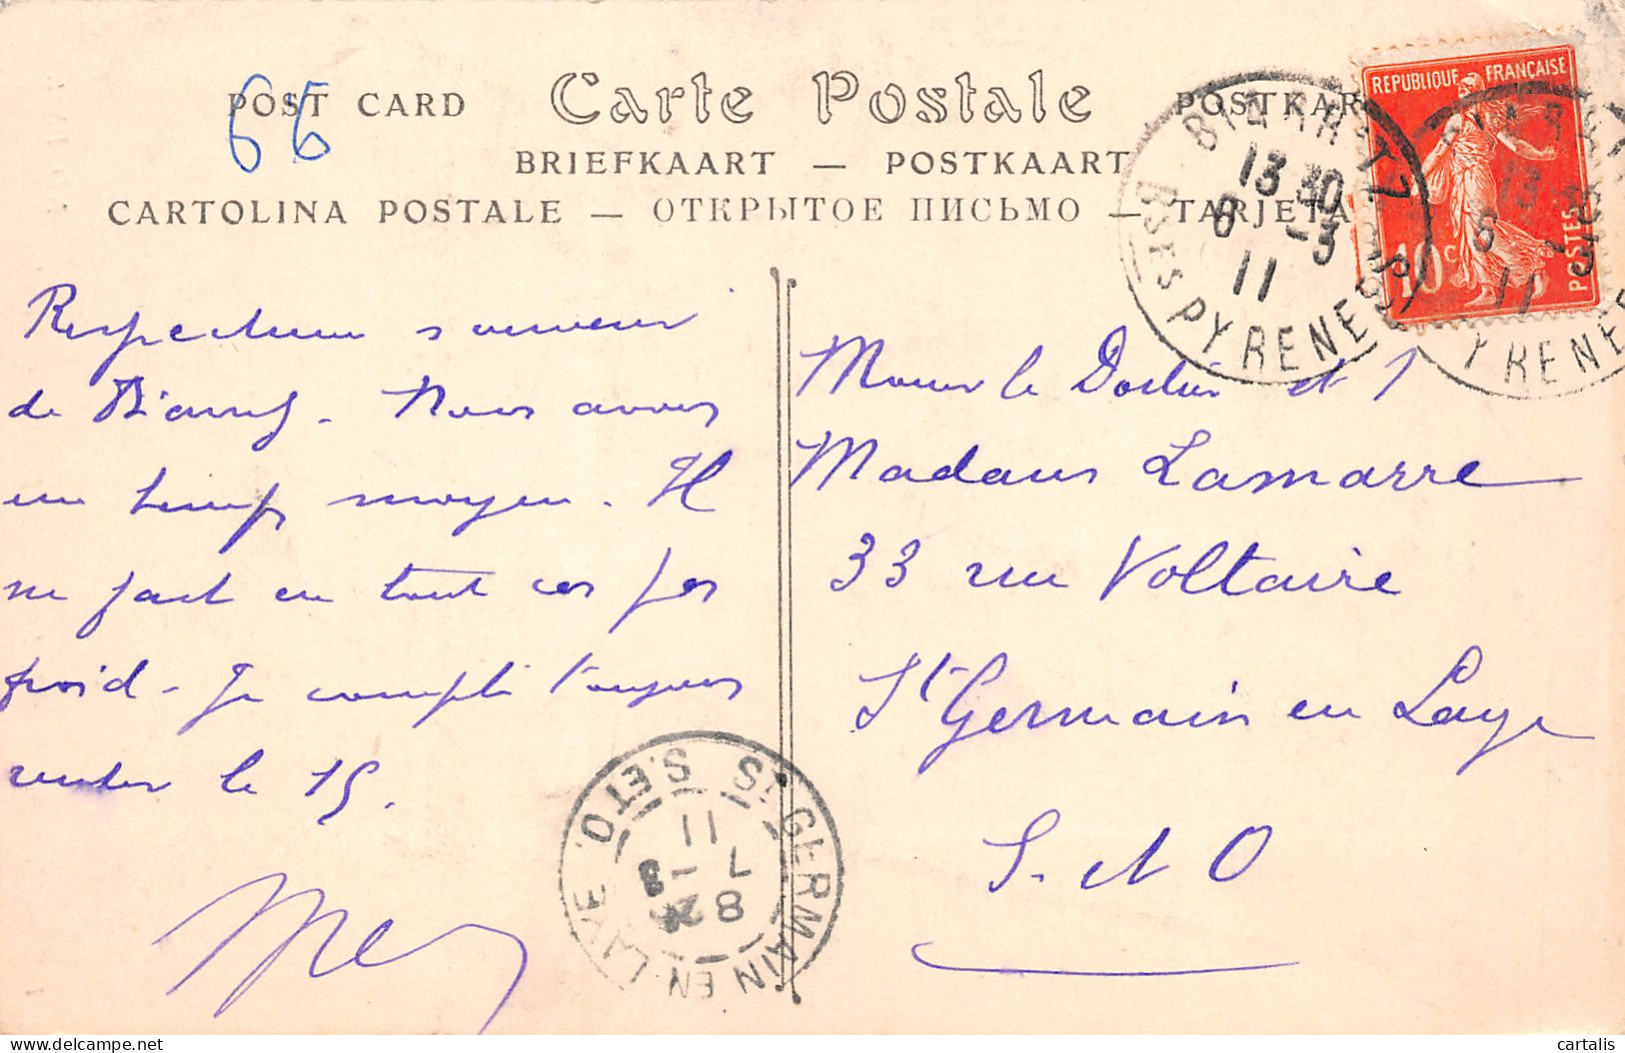 66
POST CARD Carte Postale POSTKAR
BRIEFKAART — POSTKAART
CARTOLINA POSTALE — ОТКРЫТОЕ ПИСЬМО — TARJETA
REPUBLIQUE FRANÇAISE
10c POSTES
BIARRITZ
13 30
6 -3
11
BSES PYRENEES
Respectueux souvenir
de Biarritz. Nous avons
un temps moyen. Il
ne fait en tout cas pas
froid - Je compte toujours
rentrer le 15.
Monsieur le Docteur et
Madame Lamarre
33 rue Voltaire
St Germain en Laye
S. et O
ST GERMAIN EN LAYE S. ET O.
8
7 -3
11
delcampe.net
cartalis